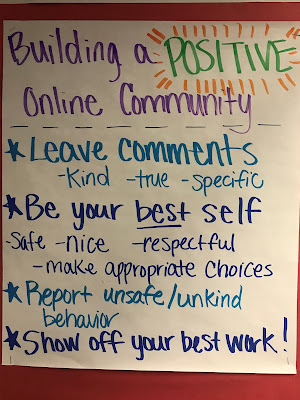 Building a POSITIVE
Online Community
★ Leave comments
-Kind -true -specific
★ Be your best self
-Safe -nice -respectful
-make appropriate choices
★ Report unsafe/unkind
behavior
★ Show off your best work!